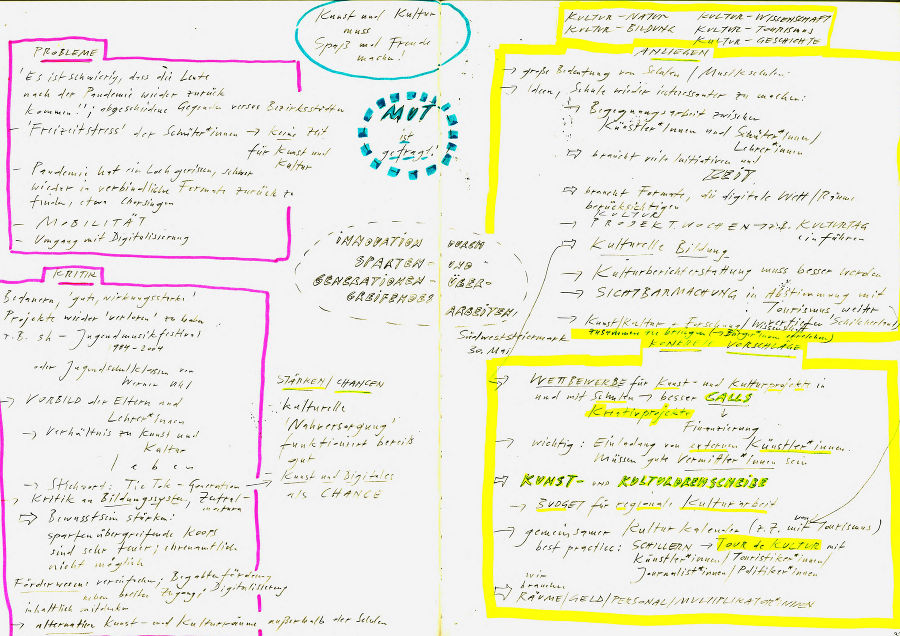 Kunst und Kultur
muss
Spaß und Freude
machen!
MUT
ist
gefragt!
PROBLEME
'Es ist schwierig, dass die Leute
nach der Pandemie wieder zurück
kommen!'; abgeschiedene Gegenden versus Bezirksstädten
- 'Freizeitstress' der Schüler*innen → keine Zeit
für Kunst und
Kultur
- Pandemie hat ein Loch gerissen, schwer
wieder in verbindliche Formate zurück zu
finden, etwa Chorsingen
- MOBILITÄT
- Umgang mit Digitalisierung
KRITIK
Bedauern, 'gute, wirkungsstarke'
Projekte wieder 'verloren' zu haben
z.B. sh - Jugendmusikfestival
1984-2004
oder Jugendschulklassen von
Werner Uhl
→ VORBILD der Eltern und
Lehrer*innen
→ Verhältnis zu Kunst und
Kultur
leben
→ Stichwort: Tic Tok - Generation
→ Kritik an Bildungssystem, Zentral-
matura
⇒ Bewusstsein stärken:
spartenübergreifende Koops
sind sehr teuer; ehrenamtlich
nicht möglich
Förderwesen vereinfachen; Begabtenförderung
neben breiten Zugang; Digitalisierung
inhaltlich mitdenken
→ alternative Kunst- und Kulturräume außerhalb der Schulen
INNOVATION DURCH
SPARTEN- UND
GENERATIONEN- ÜBER-
GREIFENDES
ARBEITEN!
Südweststeiermark
30. Mai
STÄRKEN/CHANCEN
kulturelle
'Nahversorgung'
funktioniert bereits
gut
→ Kunst und Digitales
als CHANCE
KULTUR-NATUR KULTUR-WISSENSCHAFT
KULTUR-BILDUNG KULTUR-TOURISMUS
KULTUR-GESCHICHTE
ANLIEGEN
→ große Bedeutung von Schulen/Musikschulen:
→ Ideen, Schule wieder interessanter zu machen:
⇒ Begegnungsarbeit zwischen
Künstler*innen und Schüler*innen/
Lehrer*innen
⇒ braucht viele Initiativen und
ZEIT
⇒ braucht Formate, die digitale Welt/Räume
berücksichtigen
KULTUR
→ PROJEKTWOCHEN → z.B. KULTURTAG
einführen
⇒ Kulturelle Bildung
→ Kulturberichterstattung muss besser werden
→ SICHTBARMACHUNG in Abstimmung mit
Tourismus weiter
vertiefen (Schilcherland)
→ Kunst/Kultur - Forschung/Wissenschaft
zusammen zu bringen (→ Bürger*innen erreichen)
KONKRETE VORSCHLÄGE
⇒ WETTBEWERBE für Kunst- und Kulturprojekte in
und mit Schulen → besser CALLS
Kreativprojekte ↓
Finanzierung
→ wichtig: Einladung von externen Künstler*innen.
Müssen gute Vermittler*innen sein
⇒ KUNST- UND KULTURDREHSCHEIBE
→ BUDGET für regionale Kulturarbeit
→ gemeinsamer Kulturkalender (z.Z. mit Tourismus)
best practice: SCHILLERN → TOUR de KULTUR mit
Künstler*innen/Touristiker*innen/
Journalist*innen/Politiker*innen
wir
brauchen
⇒ RÄUME/GELD/PERSONAL/MULTIPLIKATOR*INNEN